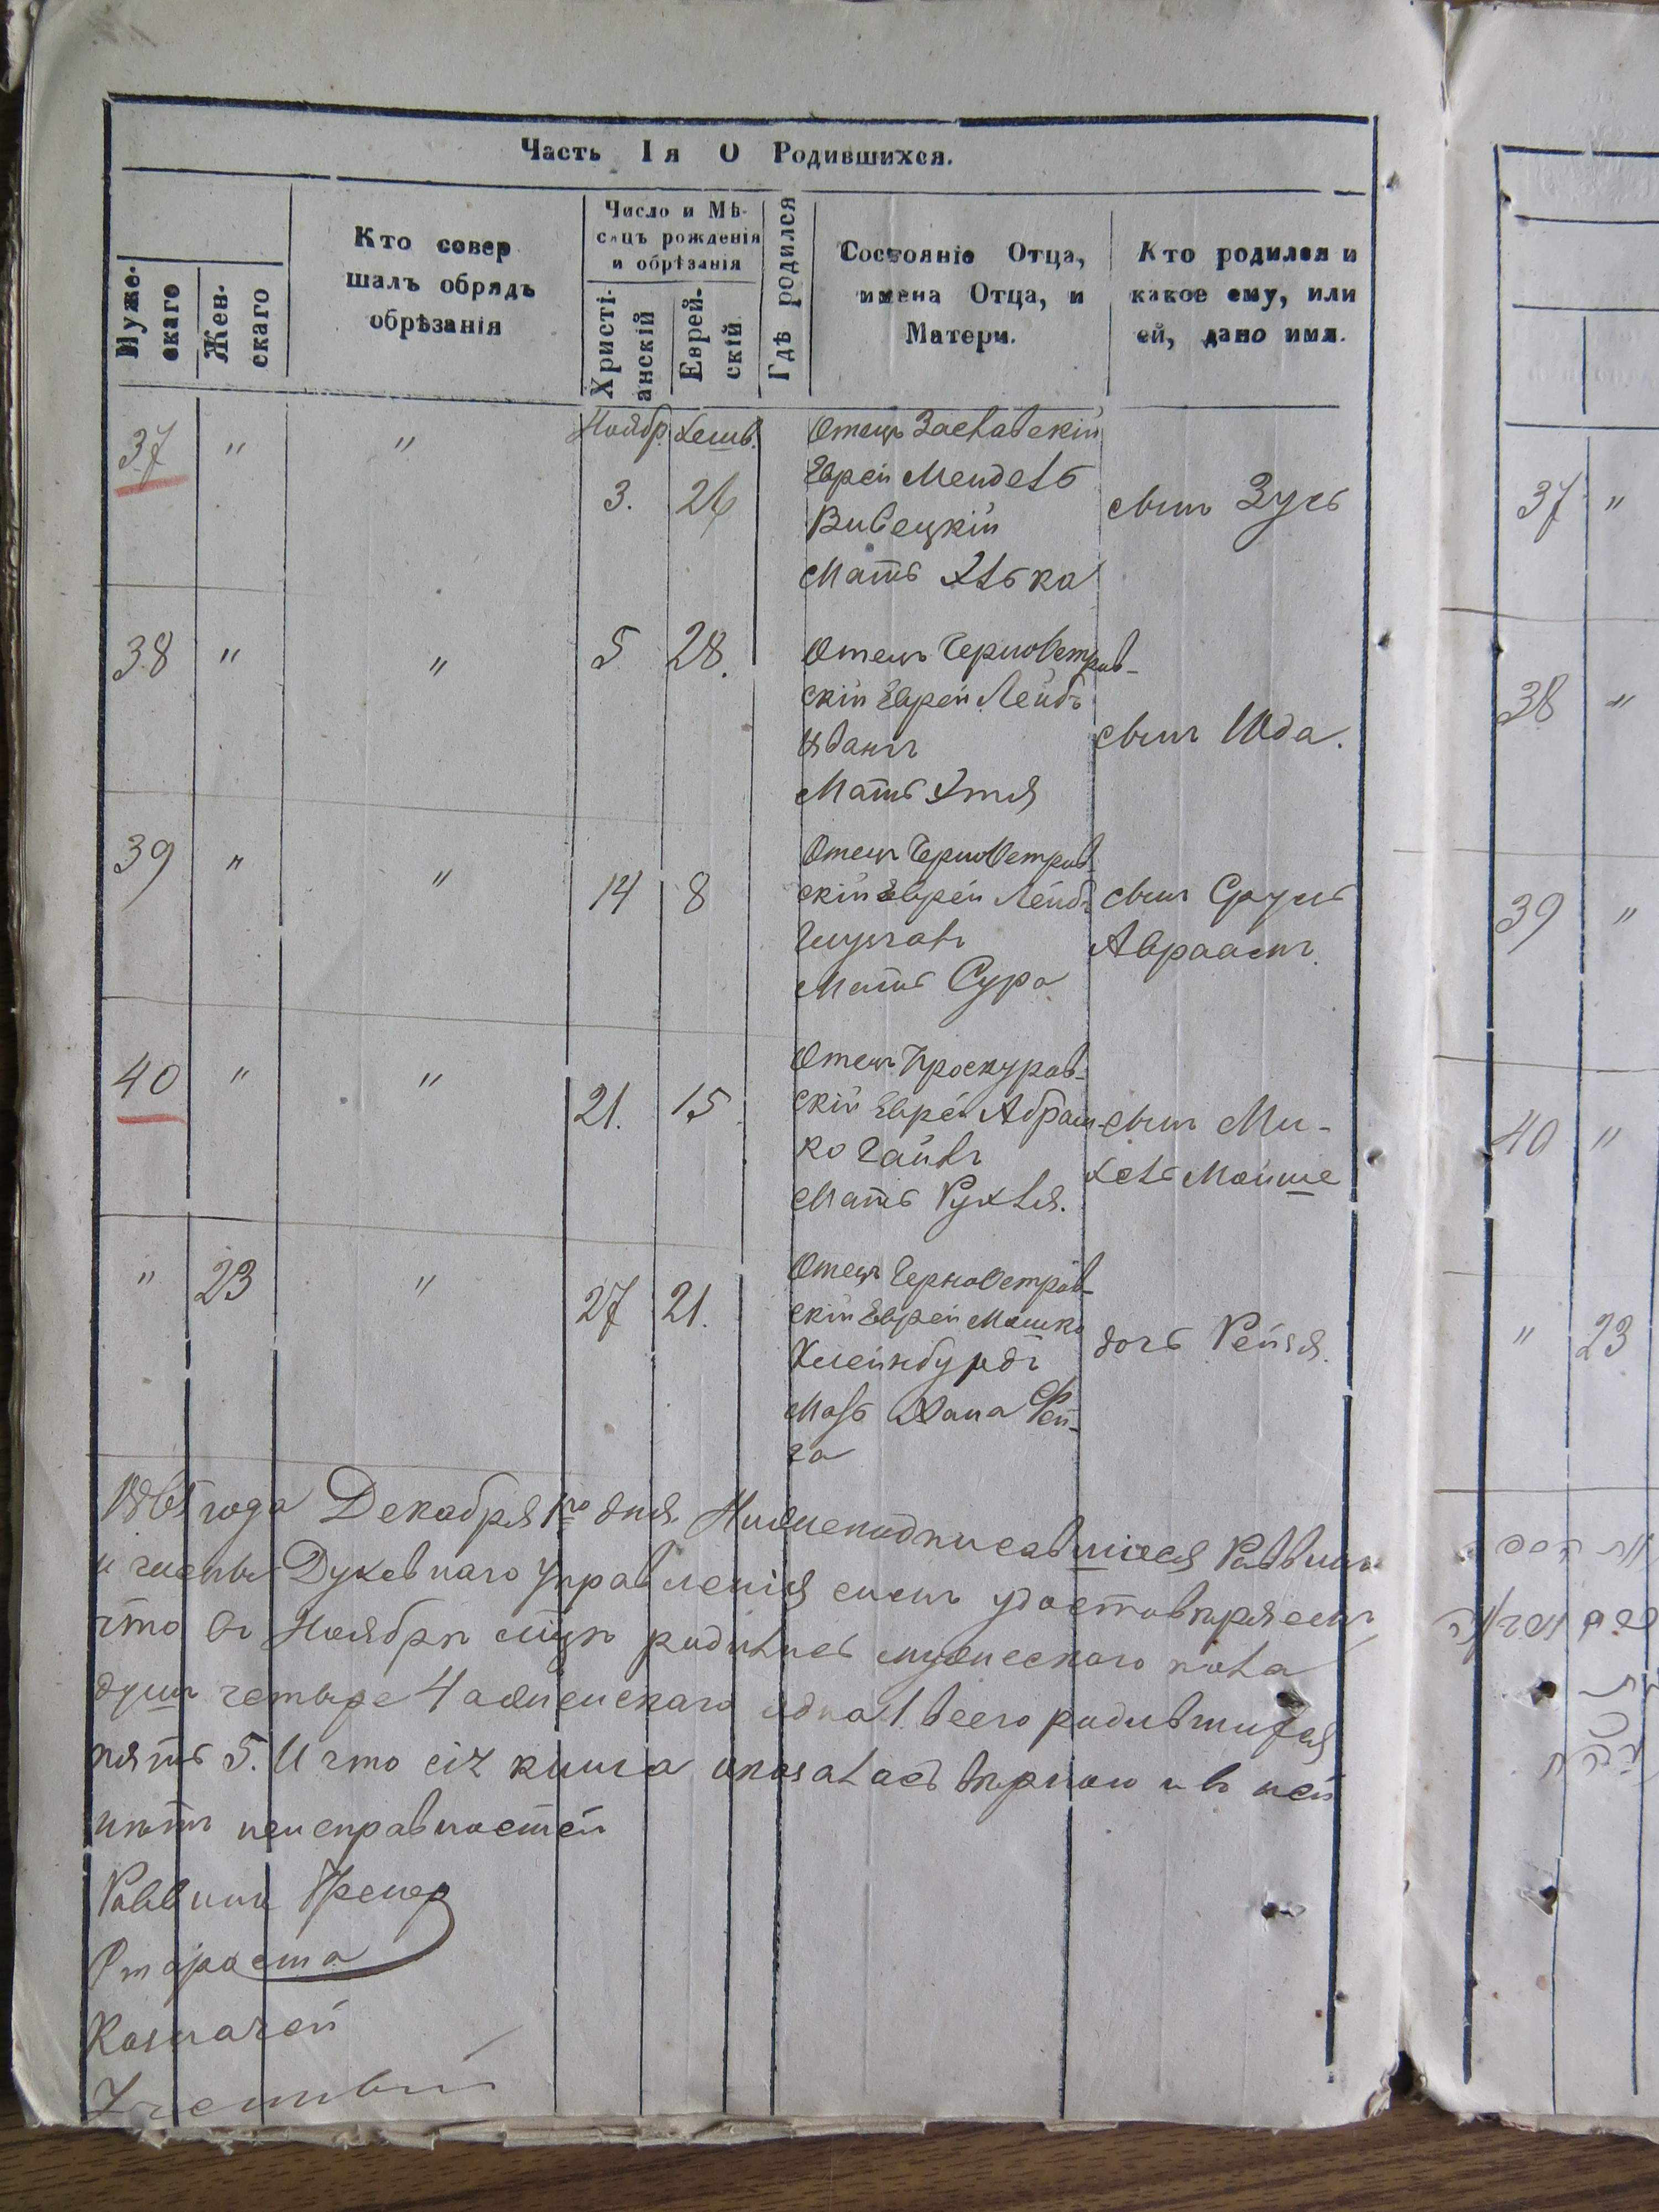 Часть Iя О Родившихся.
Мужескаго
Женскаго
Кто совершалъ обрядъ обрѣзанія
Число и Мѣсяцъ рожденія и обрѣзанія
Христіанскій
Еврейскій
Гдѣ родился
Состояніе Отца, имена Отца, и Матери.
Кто родился и какое ему, или ей, дано имя.
37 " " Ноябр. Хешв. Отецъ Заславскій
3. 26 Еврей Мендель сынъ Зусь
Мать Элька
38 " " 5 28. Отецъ Черноостров-
скій Еврей Лейбъ
сынъ Юда.
Мать Этля
39 " " Отецъ Черноостров-
14 8 скій Еврей Лейбъ сынъ Сруль
Авраамъ.
Мать Сура
40 " " Отецъ Проскуров-
21. 15 скій Еврей Абрам- сынъ Ми-
ко хель Мойше
Мать Рухля.
" 23 " Отецъ Черноостров-
27 21. скій Еврей Мошко
Клейнбурдъ дочь Рейзя.
Мать Хана Фей-
га
1865 года Декабря 1го дня Нижеподписавшіеся Раввинъ
и члены Духовнаго Управленія симъ удостовѣряемъ
что въ Ноябрѣ мцѣ родилось мужескаго пола
душъ четыре 4 а женскаго одна 1. всего родившихся
пять 5. И что сія книга оказалась вѣрною и въ ней
нѣтъ неисправностей
Раввинъ
Староста
Казначей
Ученый
37 "
38 "
39 "
40 "
" 23